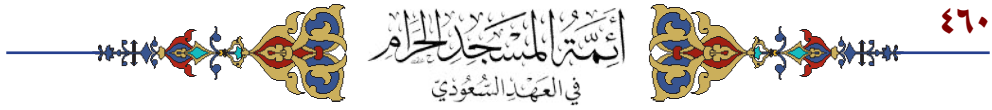 ٤٦٠
أَئِمَّةُ المَسْجِدِ الحَرَامِ
فِي العَهْدِ السُّعُودِيّ